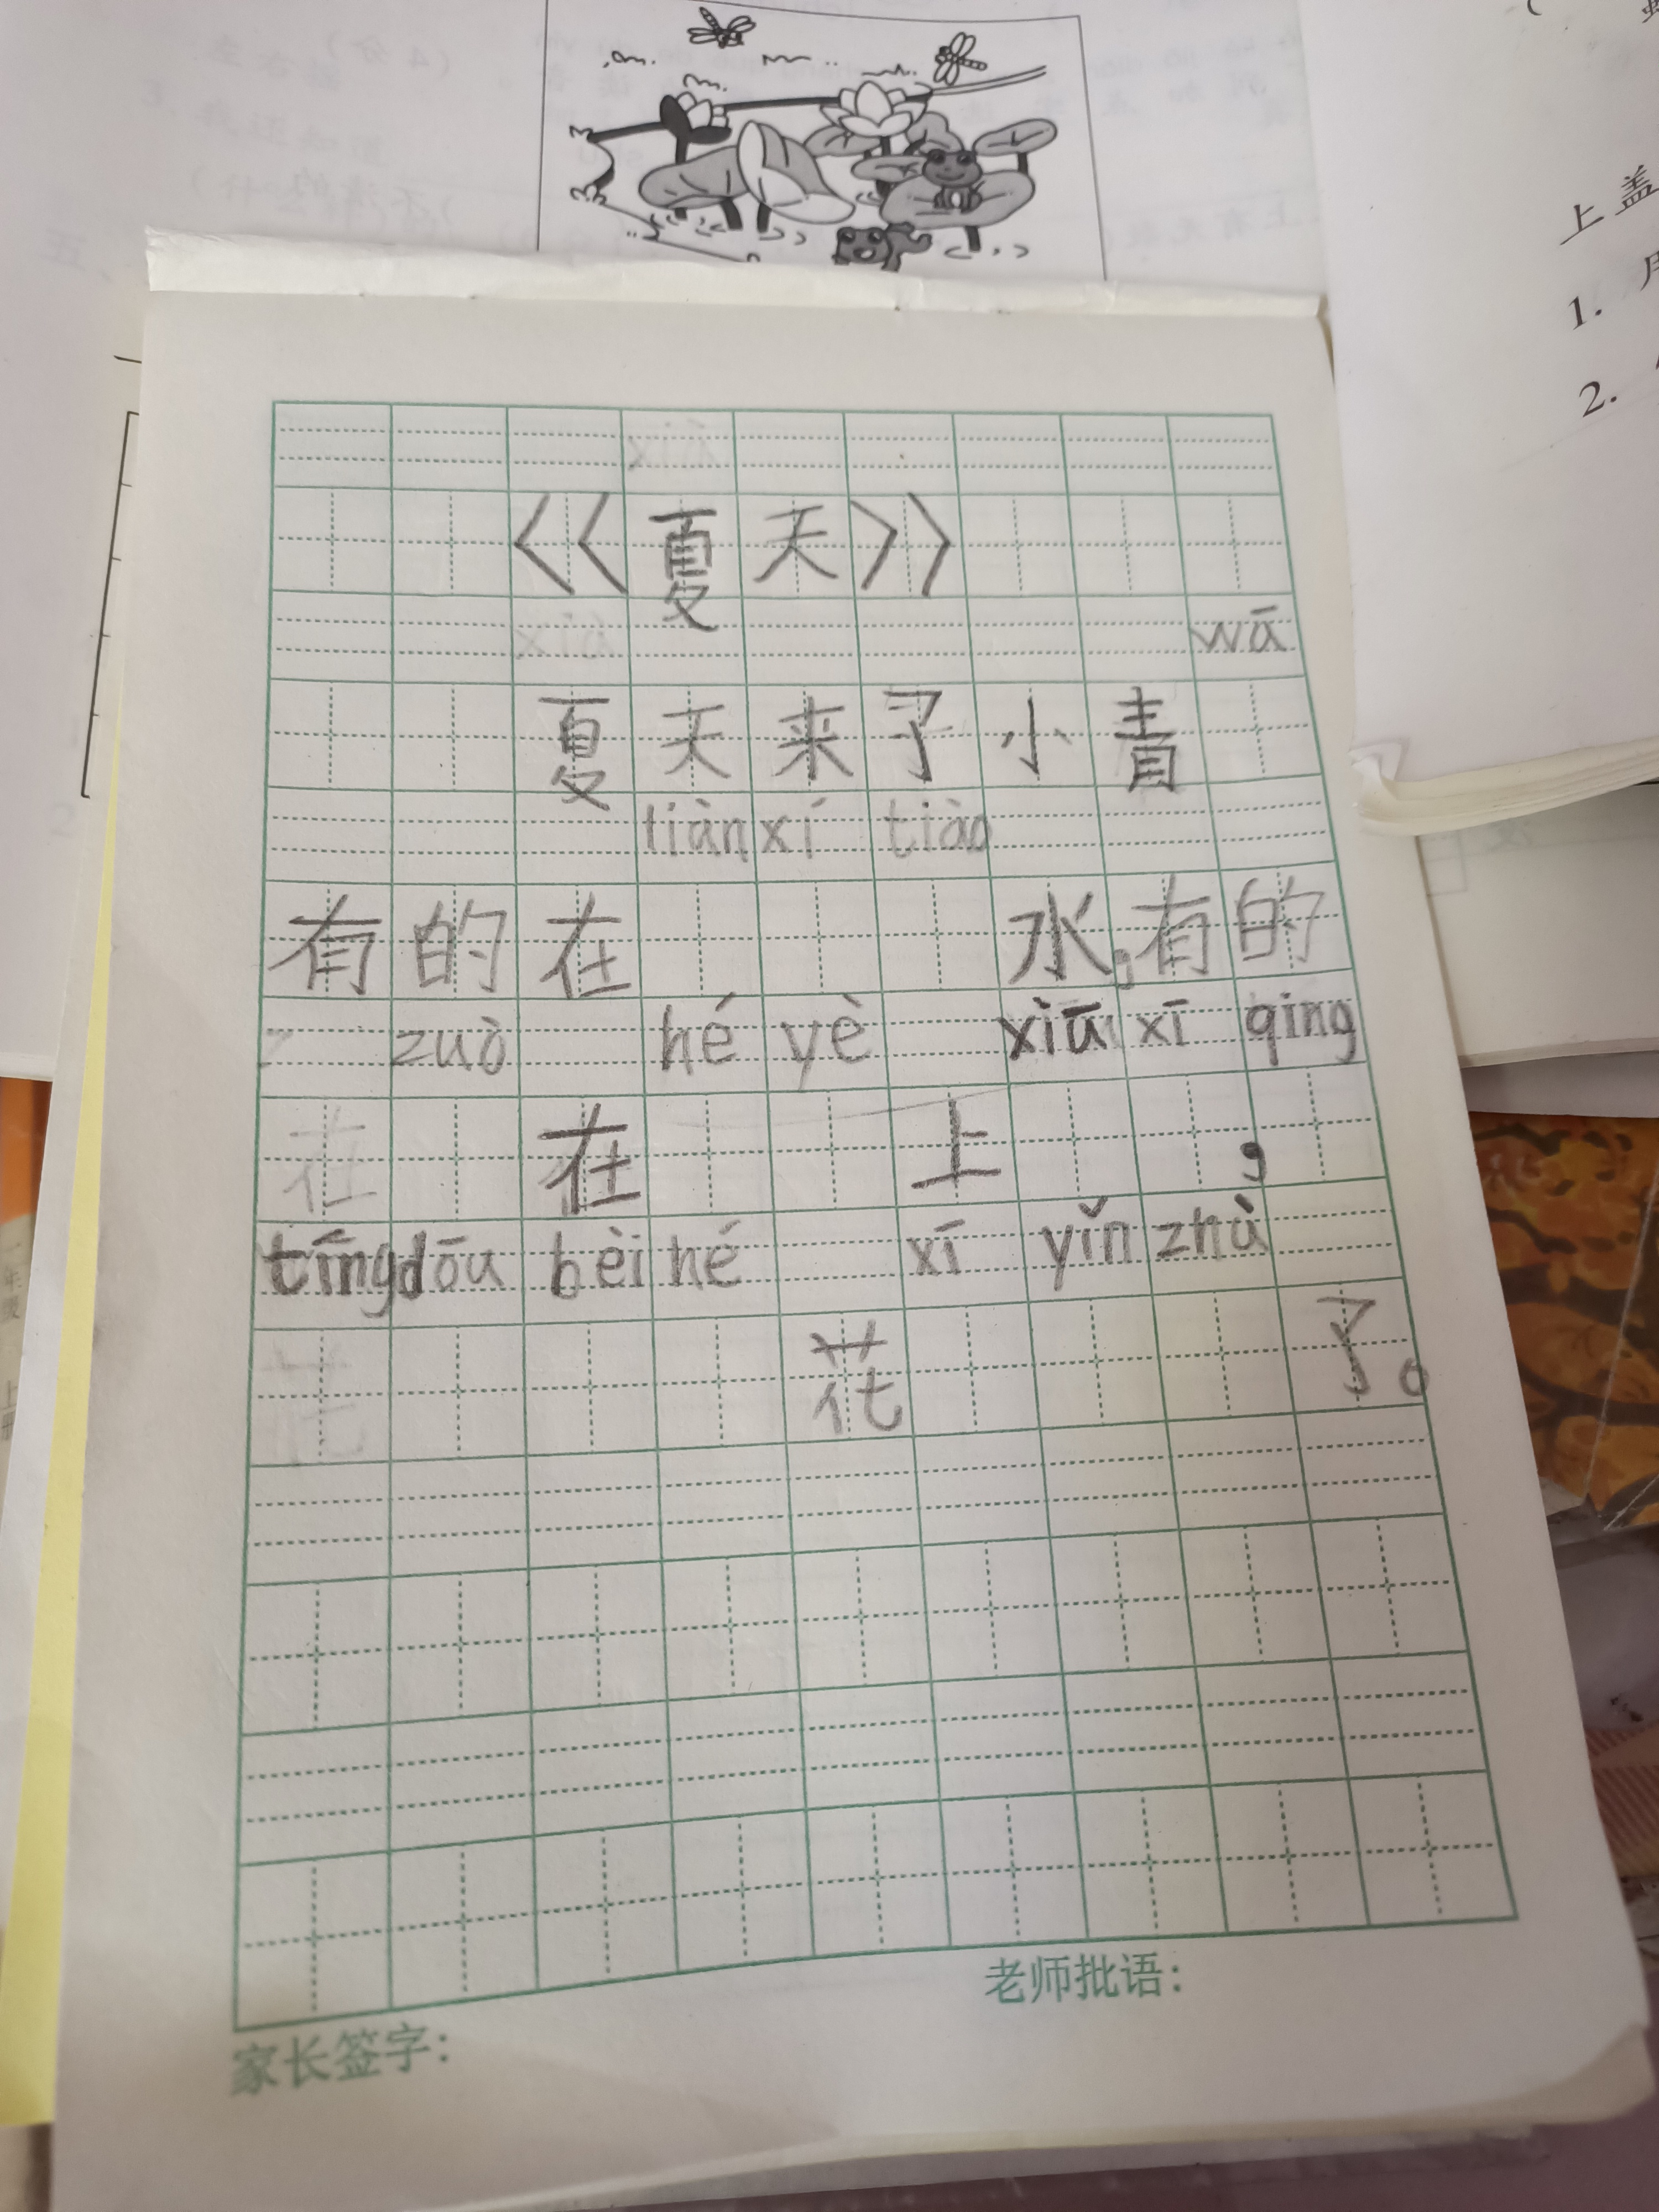 上盖
1.
2.
<<夏天>>
wā
夏天来了小青
liàn xí tiào
有的在 水,有的
zuò hé yè xiū xī qing
在 上,
tíng dōu bèi hé xī yǐn zhù
花 了。
老师批语:
家长签字: